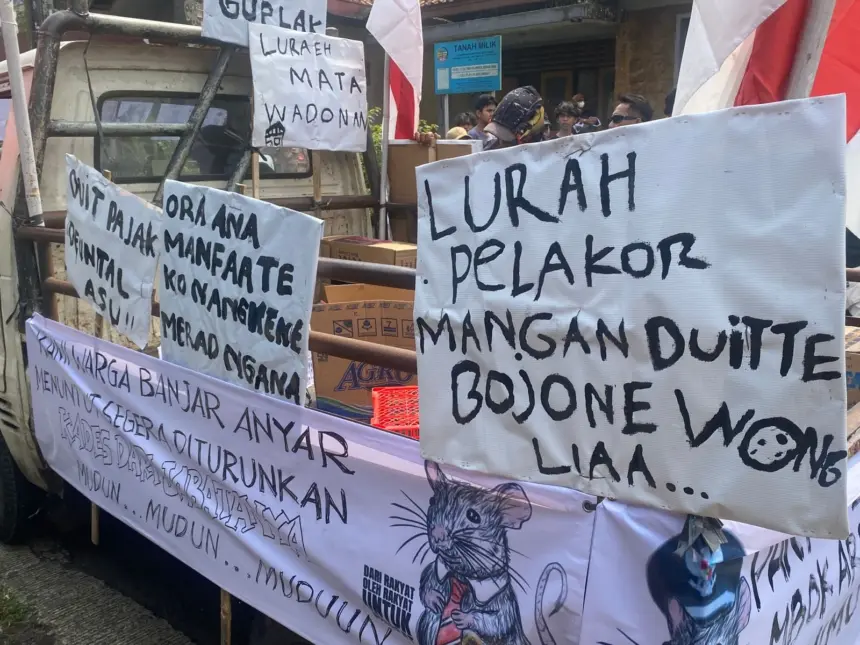 GUPLAK
LURAEH
MATA
WADONAN
TANAH MILIK
DUIT PAJAK
DIUNTAL
ASU !!
ORA ANA
MANFAATE
KONANGKENE
MERAD NGANA
LURAH
PELAKOR
MANGAN DUITTE
BOJONE WONG
LIAA...
KAMI WARGA BANJAR ANYAR
MENUNTUT SEGERA DITURUNKAN
KADES DARI JABATANNYA
MUDUN... MUDUN... MUDUUUN
DARI RAKYAT
OLEH RAKYAT
UNTUK
AGRO
MBOK